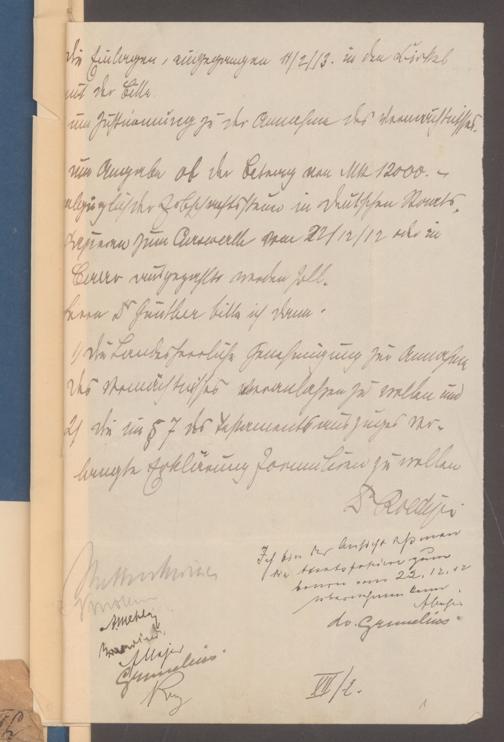 die Einlagen, eingegangen 11/2/13. in den Zirkel
mit der Bitte
um Zustimmung zu der Annahme des Vermächtnisses,
um Angabe ob der Betrag von Mk 12000.–
abzüglich der Erbschaftssteuer in deutschen Staats-
papieren zum Curswerthe vom 22/12/12 oder in
Baar ausgezahlt werden soll.
Herrn Dr Günther bitte ich dann.
1) die Landesherrliche Genehmigung zur Annahme
des Vermächtnisses veranlassen zu wollen und
2) die im § 7 des Testamentsauszuges ver-
langte Erklärung formulieren zu wollen
Dr Roediger
Ich bin der Ansicht dass man
die Staatspapiere zum
vom 22.12.12
übernehmen kann
dr. Grunelius.
Grunelius.
VII/2.